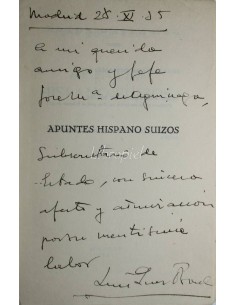 Madrid 25 · XI · 35
A mi querido
amigo y jefe
APUNTES HISPANO SUIZOS
Subsecretario de
Estado, con sincero
afecto y admiración
por su meritísima
labor
Luis